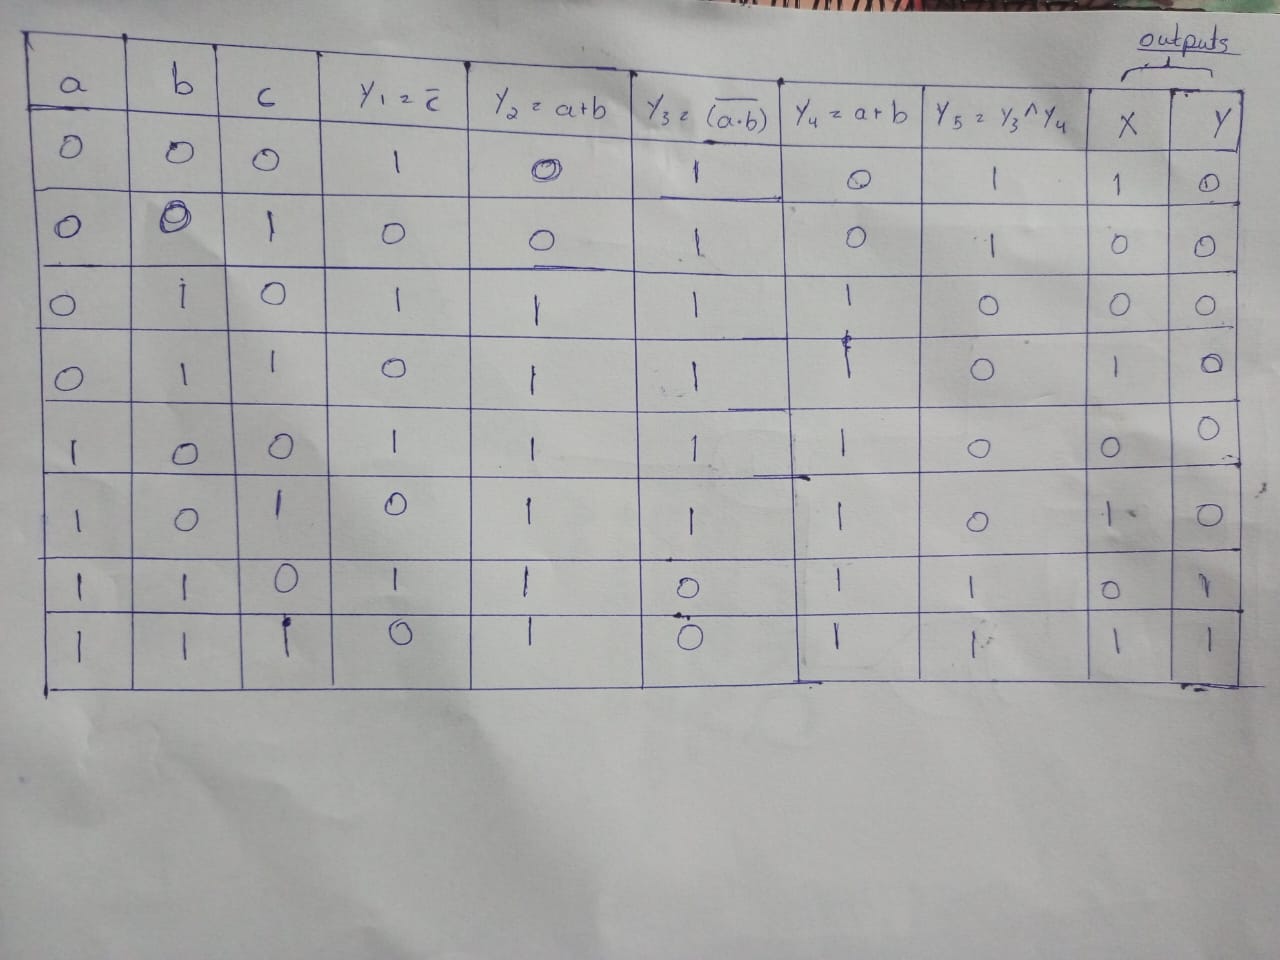 outputs
a b c Y₁ = c̄ Y₂ = a+b Y₃ = (a·b)̅ Y₄ = a+b Y₅ = Y₃^Y₄ X Y
0 0 0 1 0 1 0 1 1 0
0 0 1 0 0 1 0 1 0 0
0 1 0 1 1 1 1 0 0 0
0 1 1 0 1 1 1 0 1 0
1 0 0 1 1 1 1 0 0 0
1 0 1 0 1 1 1 0 1 0
1 1 0 1 1 0 1 1 0 1
1 1 1 0 1 0 1 1 1 1